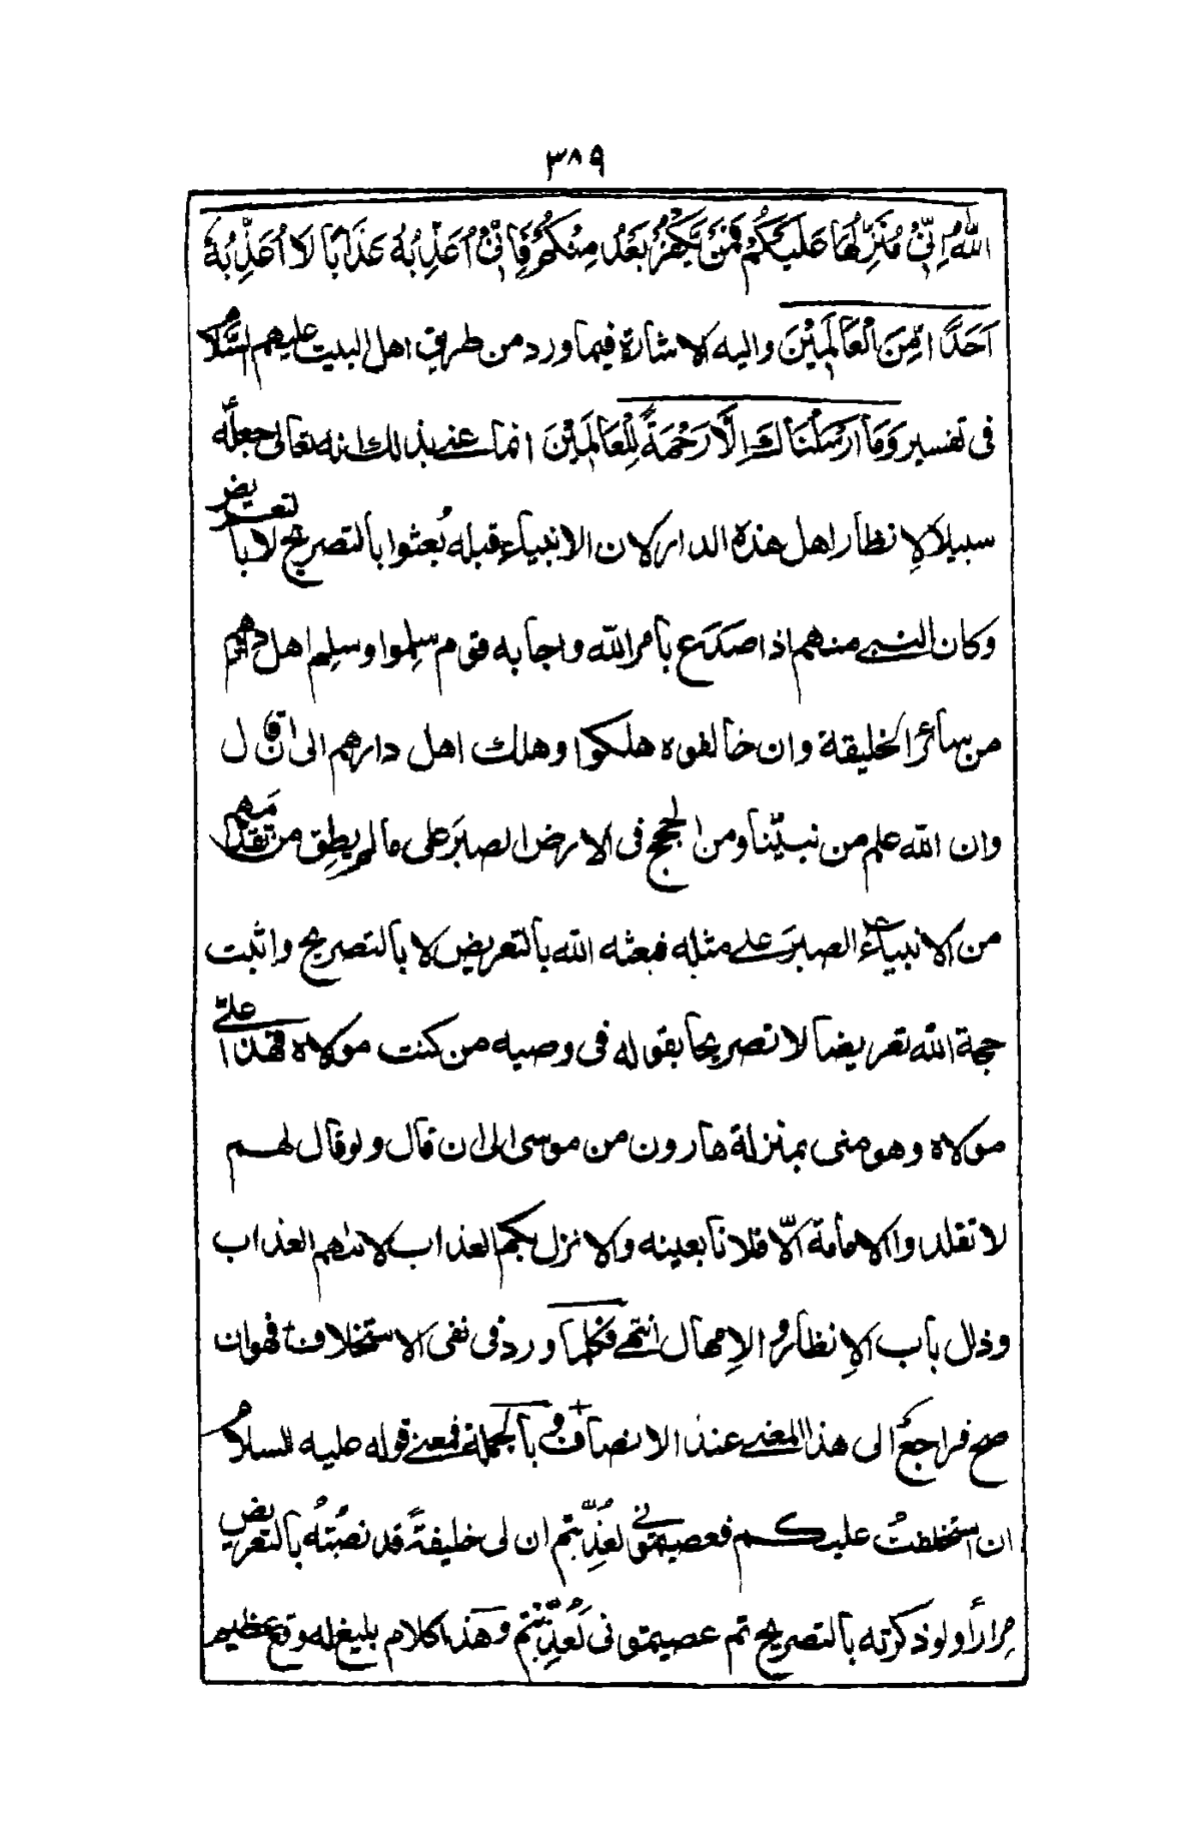 ٣٨٩
اللهُ اِنِّي مُنَزِّلُهَا عَلَيْكُمْ فَمَنْ يَكْفُرْ بَعْدُ مِنْكُمْ فَاِنِّيْ اُعَذِّبُهُ عَذَابًا لَا اُعَذِّبُهُ
اَحَدًا مِّنَ الْعَالَمِيْنَ واليه الاشارة فيما ورد من طريق اهل البيت عليهم السلام
فى تفسير وَمَا اَرْسَلْنَاكَ اِلَّا رَحْمَةً لِلْعَالَمِيْنَ انما عنى بذلك انه تعالى جعله
سبيلا لاِنظار اهل هذه الدار لان الانبياء قبله بُعثوا بالتصريح لا بالتعريض
وكان النبي منهم اذا صَدَع بامر الله واجابه قوم سلِموا وسلِم اهل دارهم
من سائر الخليقة وان خالفوه هلكوا وهلك اهل دارهم الى ان قال
وان الله علم من نبيّنا ومن الحجج فى الارض الصبرَ على ما لم يطِق من تقدَّمهم
من الانبياء الصبرَ على مثله فبعثه الله بالتعريض لا بالتصريح واثبت
حجة الله تعريضا لا تصريحا بقوله فى وصيه من كنت مولاه فهذا علىّ
مولاه وهو منى بمنزلة هارون من موسى الى ان قال ولو قال لهم
لا تقلدوا الامامة الّا فلانا بعينه والا نزل بكم العذاب لاتاهم العذاب
وذال باب الاِنظار والاِمهال انتهى فكلما ورد فى نفى الاستخلاف فهو ان
صح فراجعٌ الى هذا المعنى عند الانصاف و بالجملة فمعنى قوله عليه السلام
ان استخلفتُ عليكم فعصيتمونى لعُذِّبتم ان لى خليفةً قد نصبْتُه بالتعريض
مِراراً ولو ذكرته بالتصريح ثم عصيتمونى لَعُذِّبْتم وهذا كلام بليغ له وقع عظيم